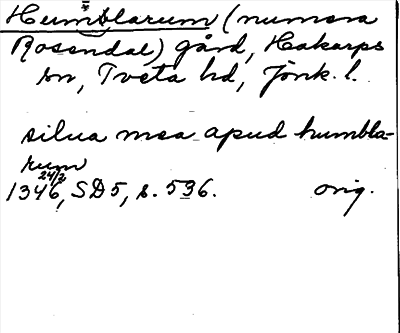 Humblarum (numera
Rosendal) gård, Hakarps
sn, Tveta hd, Jönk. l.
silua mea apud humbla-
rum
1346 24/2, SD5, s. 536. orig.